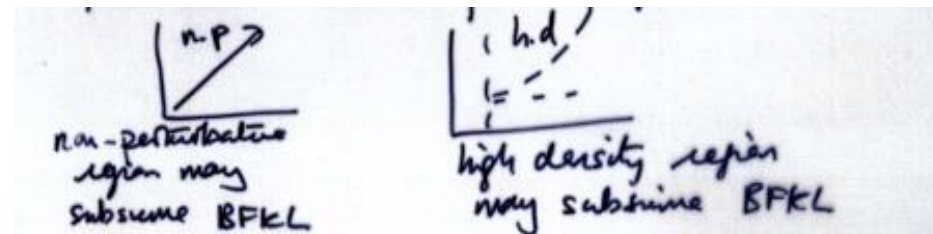 n.p
non-perturbative
region may
subsume BFKL
h.d
high density region
may subsume BFKL